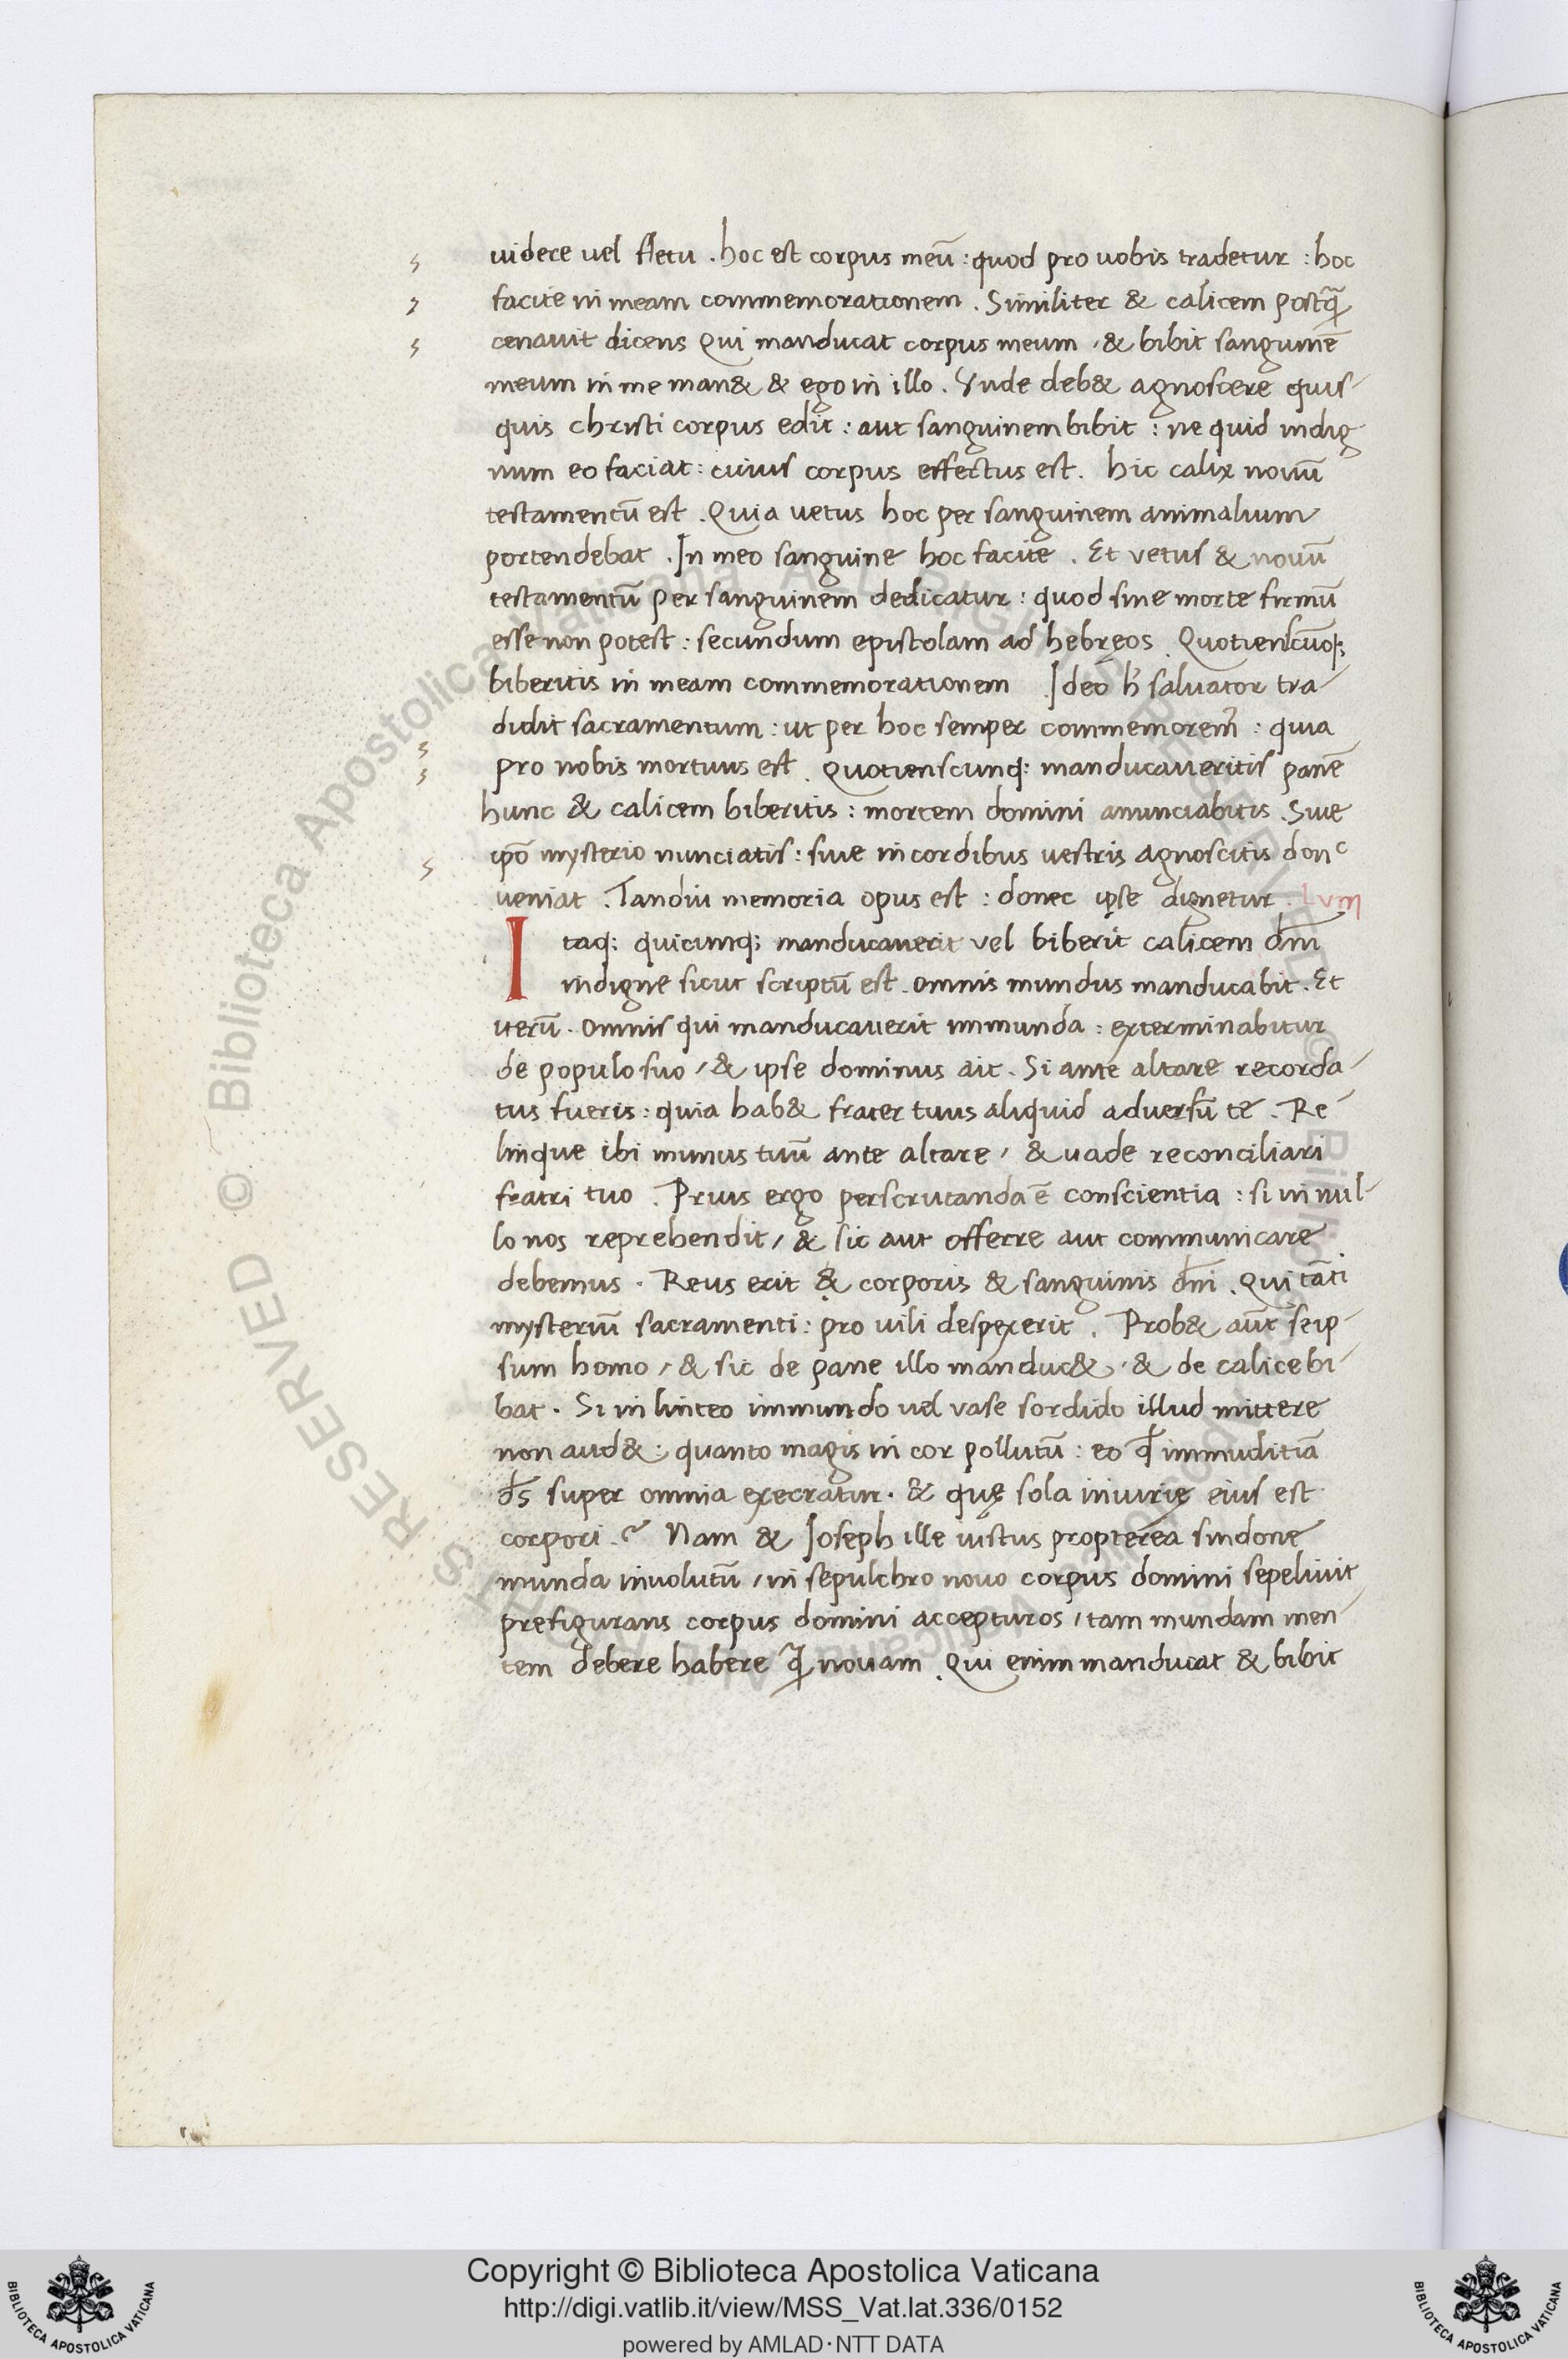 uidere vel fletu . hoc est corpus meū : quod pro uobis tradetur : hoc
facite in meam commemorationem . Similiter & calicem postq̄
cenauit dicens Qui manducat corpus meum , & bibit sanguinē
meum in me man& & ego in illo . Vnde deb& agnoscere quis-
quis christi corpus edit : aut sanguinem bibit : ne quid indig
num eo faciat : cuius corpus effectus est . hic calix nouū
testamentū est . Quia vetus hoc per sanguinem animalium
portendebat . In meo sanguine hoc facite . Et vetus & nouū
testamentū per sanguinem dedicatur : quod sine morte firmū
esse non potest : secundum epistolam ad hebręos . Quotienscūq;
biberitis in meam commemorationem Ideo h̄ saluator tra-
didit sacramentum : ut per hoc semper commemorem̄ : quia
pro nobis mortuus est . Quotienscunq: manducaueritis panē
hunc & calicem biberitis : mortem domini anunciabitis . Siue
ip̄o mysterio nunciatis : siue in cordibus vestris agnoscitis donᶜ
ueniat . Tandiu memoria opus est : donec ipse dignetur .
Itaq; quicunq; manducauerit vel biberit calicem dn̄i
indigne sicut scriptū est . omnis mundus manducabit . Et
iterū . omnis qui manducauerit immunda : exterminabitur
de populo suo , & ipse dominus ait . Si ante altare recorda-
tus fueris : quia hab& frater tuus aliquid aduersū te . Re-
linque ibi munus tuū ante altare , & uade reconciliari
fratri tuo . Prius ergo perscrutanda ē conscientia : si in nul-
lo nos reprehendit , & sic aut offerre aut communicare
debemus . Reus erit & corporis & sanguinis dn̄i . Qui tāti
mysteriū sacramenti : pro uili despexerit . Prob& aūt seip-
sum homo , & sic de pane illo manduc& , & de calice bi-
bat . Si in linteo immundo uel vase sordido illud mittere
non aud& : quanto magis in cor pollutū : eo q̄ immuditiā
d̄s super omnia execratur . & quę sola iniurię eius est
corpori . ? Nam & Ioseph ille iustus propterea sindone
munda inuolutū , in sepulchro nouo corpus domini sepeliuit
prefigurans corpus domini accepturos , tam mundam men-
tem debere habere q̄ nouam . Qui enim manducat & bibit
Biblioteca Apostolica Vaticana ALL RIGHTS RESERVED ©
Copyright © Biblioteca Apostolica Vaticana
http://digi.vatlib.it/view/MSS_Vat.lat.336/0152
powered by AMLAD·NTT DATA
BIBLIOTECA APOSTOLICA VATICANA
BIBLIOTECA APOSTOLICA VATICANA